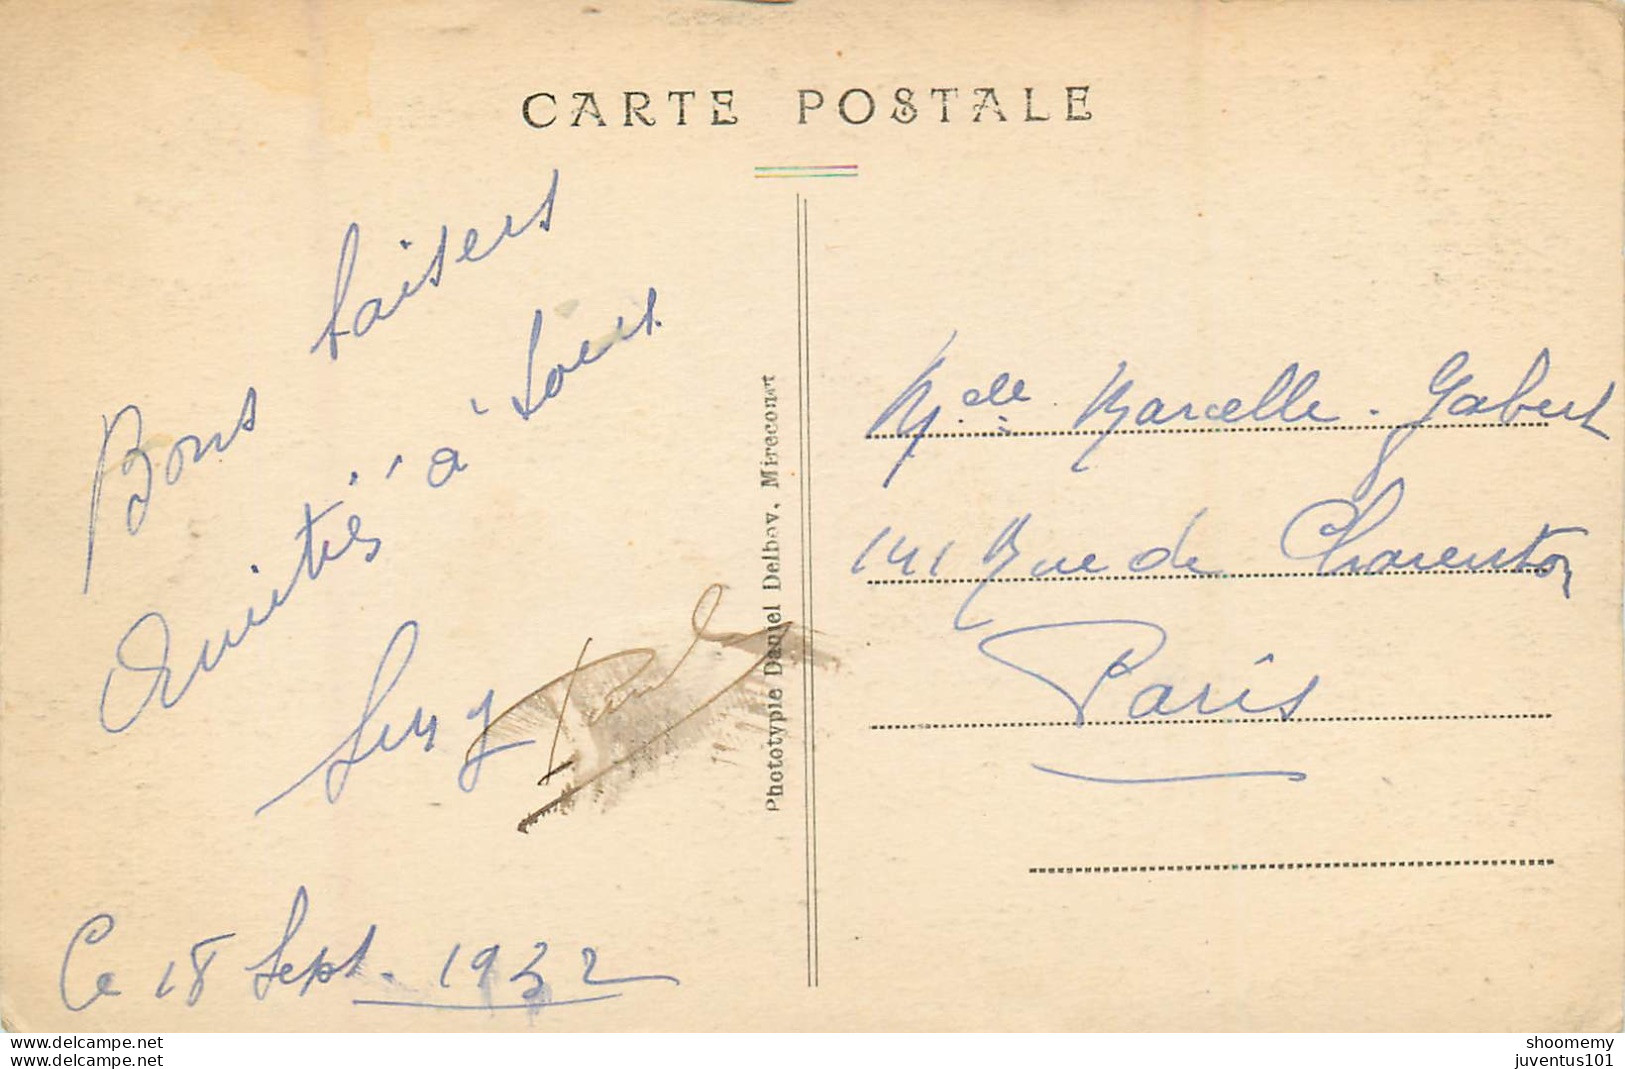 CARTE POSTALE
Bons baisers
Amitiés à tous
Suzy Paul
Ce 18 Sept. 1932
Phototypie Daniel Delboy, Mirecourt
Mdelle Marcelle Gabert
141 Rue de Charenton
Paris
www.delcampe.net
www.delcampe.net
shoomemy
juventus101